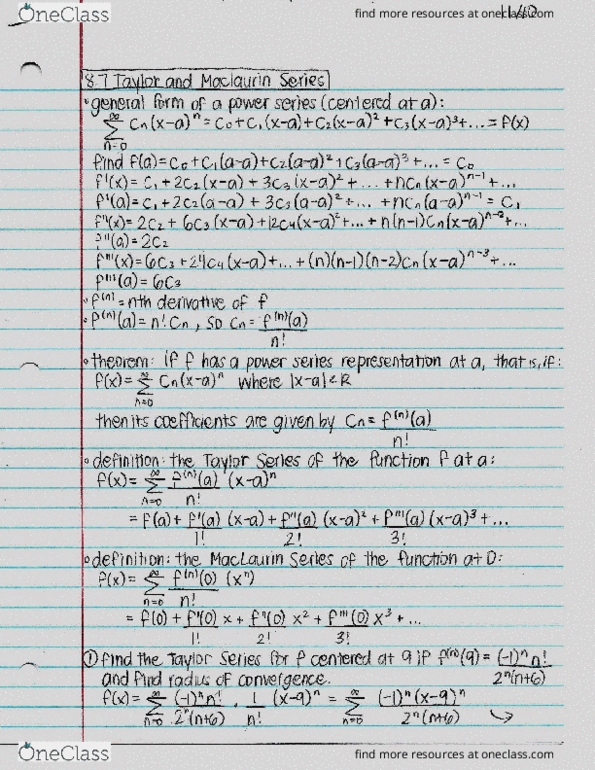 OneClass
find more resources at oneclass.com
8.7 Taylor and Maclaurin Series
• general form of a power series (centered at a):
∞∑n=0 Cn(x-a)^n = C0 + C1(x-a) + C2(x-a)^2 + C3(x-a)^3 + ... = f(x)
find f(a) = C0 + C1(a-a) + C2(a-a)^2 + C3(a-a)^3 + ... = C0
f'(x) = C1 + 2C2(x-a) + 3C3(x-a)^2 + ... + nCn(x-a)^n-1 + ...
f'(a) = C1 + 2C2(a-a) + 3C3(a-a)^2 + ... + nCn(a-a)^n-1 = C1
f''(x) = 2C2 + 6C3(x-a) + 12C4(x-a)^2 + ... + n(n-1)Cn(x-a)^n-2 + ...
f''(a) = 2C2
f'''(x) = 6C3 + 24C4(x-a) + ... + (n)(n-1)(n-2)Cn(x-a)^n-3 + ...
f'''(a) = 6C3
• f^(n) = nth derivative of f
• f^(n)(a) = n! Cn, so Cn = f^(n)(a)/n!
• theorem: if f has a power series representation at a, that is, if:
f(x) = ∞∑n=0 Cn(x-a)^n where |x-a| < R
then its coefficients are given by Cn = f^(n)(a)/n!
• definition: the Taylor Series of the function f at a:
f(x) = ∞∑n=0 f^(n)(a)/n! (x-a)^n
= f(a) + f'(a)/1! (x-a) + f''(a)/2! (x-a)^2 + f'''(a)/3! (x-a)^3 + ...
• definition: the MacLaurin Series of the function at 0:
f(x) = ∞∑n=0 f^(n)(0)/n! (x^n)
= f(0) + f'(0)/1! x + f''(0)/2! x^2 + f'''(0)/3! x^3 + ...
① find the Taylor Series for f centered at 9 if f^(n)(9) = (-1)^n n!/2^n(n+6)
and find radius of convergence.
f(x) = ∞∑n=0 (-1)^n n!/2^n(n+6) · 1/n! (x-9)^n = ∞∑n=0 (-1)^n (x-9)^n/2^n(n+6)
OneClass
find more resources at oneclass.com